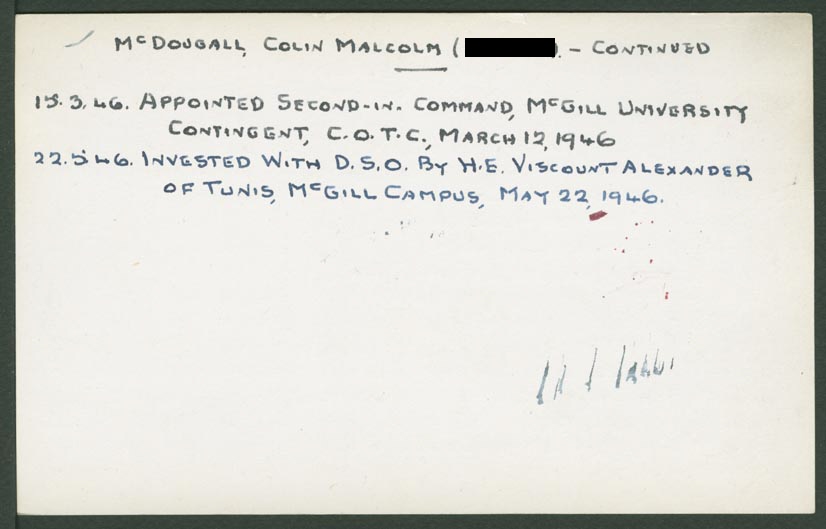 McDOUGALL, COLIN MALCOLM ( ). - CONTINUED
15.3.46. APPOINTED SECOND-IN. COMMAND, McGILL UNIVERSITY
CONTINGENT, C.O.T.C., MARCH 12, 1946
22.5.46. INVESTED WITH D.S.O. BY H.E. VISCOUNT ALEXANDER
OF TUNIS, McGILL CAMPUS, MAY 22, 1946.